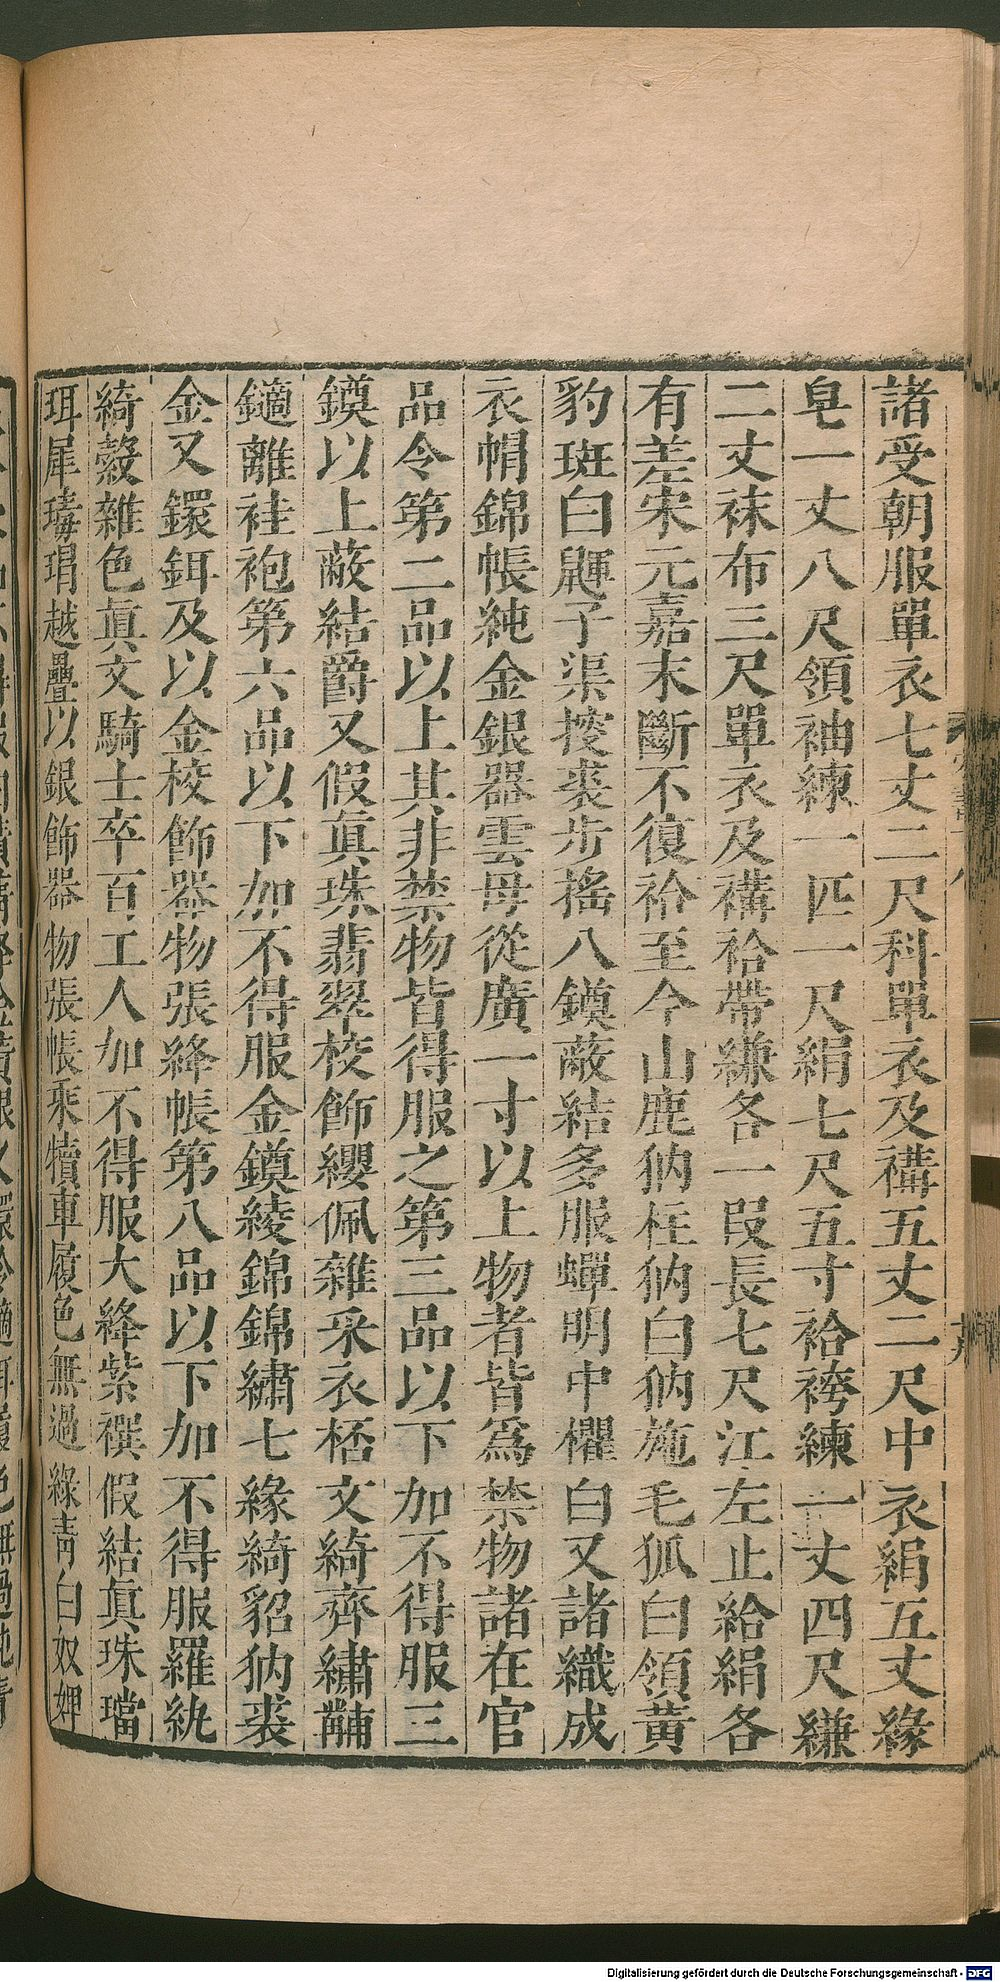 諸受朝服單衣七丈二尺科單衣及褠五丈二尺中衣絹五丈緣
皂一丈八尺領袖練一匹一尺絹七尺五寸袷袴練一丈四尺縑
二丈袜布三尺單衣及褠袷帶縑各一段長七尺江左止給絹各
有差宋元嘉末斷不復袷至今山鹿豽柱豽白豽施毛狐白領黃
豹斑白鼲子渠搜裘步搖八鏌蔽結多服蟬明中櫂白又諸織成
衣帽錦帳純金銀器雲母從廣一寸以上物者皆爲禁物諸在官
品令第二品以上其非禁物皆得服之第三品以下加不得服三
鏌以上蔽結爵又假真珠翡翠校飾纓佩雜采衣桮文綺齊繡黼
鏑離袿袍第六品以下加不得服金鏌綾錦錦繡七緣綺貂豽裘
金又鐶鉺及以金校飾器物張絳帳第八品以下加不得服羅紈
綺縠雜色真文騎士卒百工人加不得服大絳紫襈假結真珠璫
珥犀瑇瑁越疊以銀飾器物張帳乘犢車履色無過綠青白奴婢
Digitalisierung gefördert durch die Deutsche Forschungsgemeinschaft - DFG